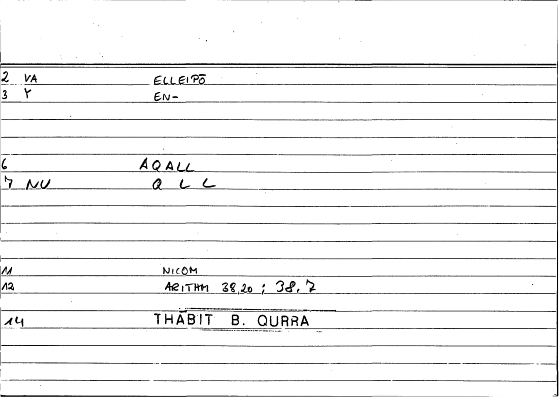 2 VA ELLEIPŌ
3 Y EN-
6 AQALL
7 NU Q L L
11 NICOM
12 ARITHM 38,20 ; 38,7
14 THĀBIT B. QURRA